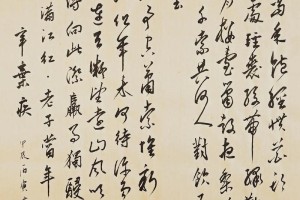 經慣花期
處輕裘緩帶繡鞍
月樓臺簫鼓夜梨
千索共何人對飲五
玉
事空蕭索懷新
但年來何待許多
連天凝望遠山風吹
向此際羸馬獨駸
滿江紅·老子當年
辛棄疾
甲辰